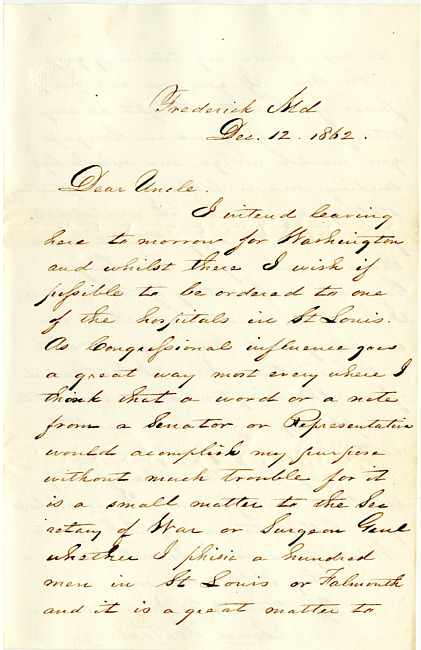 Frederick Md
Dec. 12. 1862.
Dear Uncle.
I intend leaving
here to morrow for Washington
and whilst there I wish if
possible to be ordered to one
of the hospitals in St Louis.
As Congressional influence goes
a great way most every where I
think that a word or a note
from a Senator or Representative
would acomplish my purpose
without much trouble for it
is a small matter to the Sec
retary of War or Surgeon Genl
whether I phisic a hundred
men in St Louis or Falmouth
and it is a great matter to